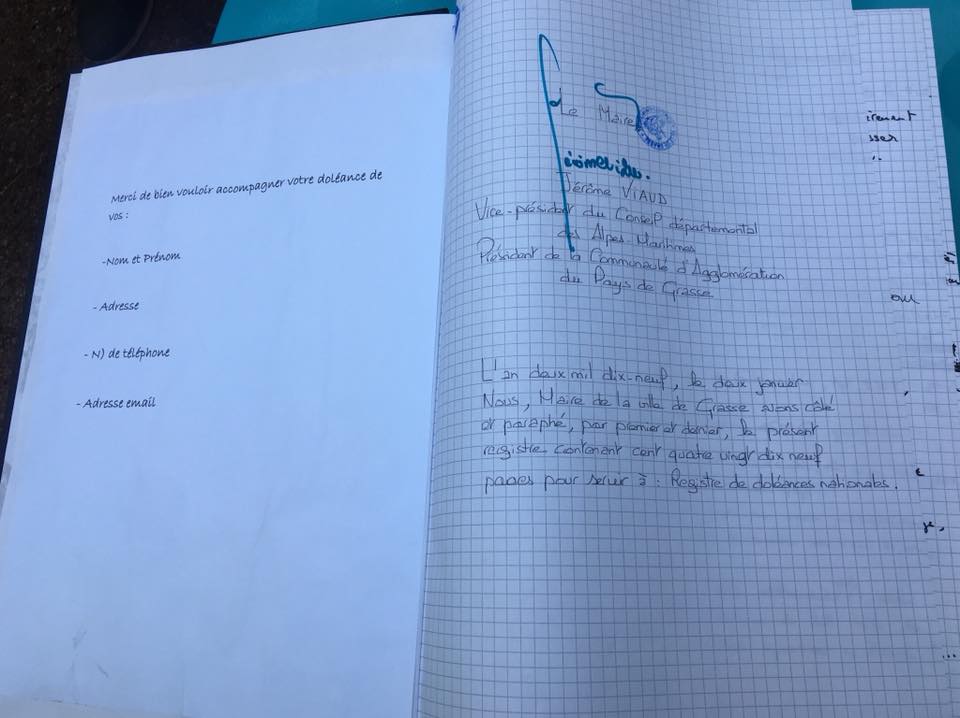 Merci de bien vouloir accompagner votre doléance de
vos :
-Nom et Prénom
- Adresse
- N) de téléphone
- Adresse email
Le Maire
Jérôme VIAUD
Vice-président du Conseil départemental
des Alpes Maritimes
Président de la Communauté d'Agglomération
du Pays de Grasse
L'an deux mil dix-neuf, le deux janvier
Nous, Maire de la ville de Grasse avons côté
et paraphé, par premier et dernier, le présent
registre contenant cent quatre vingt dix neuf
pages pour servir à : Registre de doléances nationales.
ou